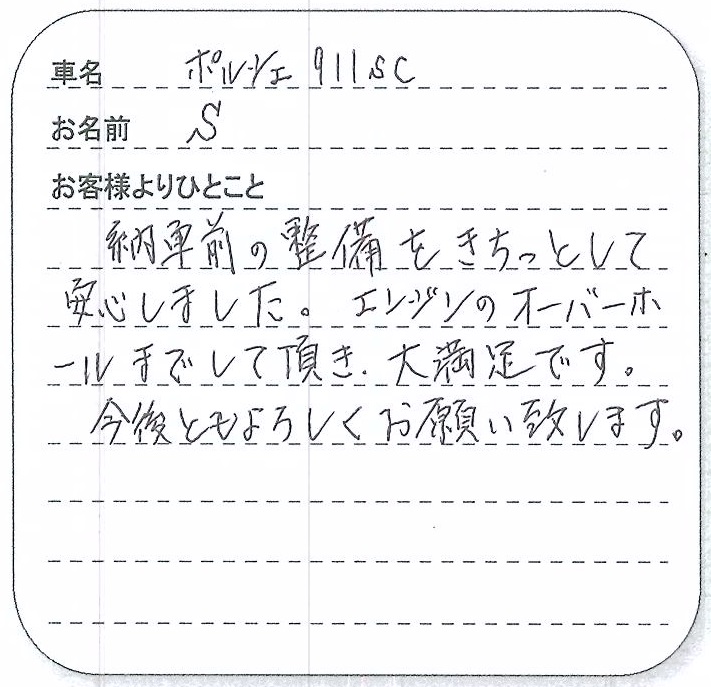 車名 ポルシェ 911SC
お名前 S
お客様よりひとこと
納車前の整備をきちっとして
安心しました。エンジンのオーバーホ
ールまでして頂き、大満足です。
今後ともよろしくお願い致します。